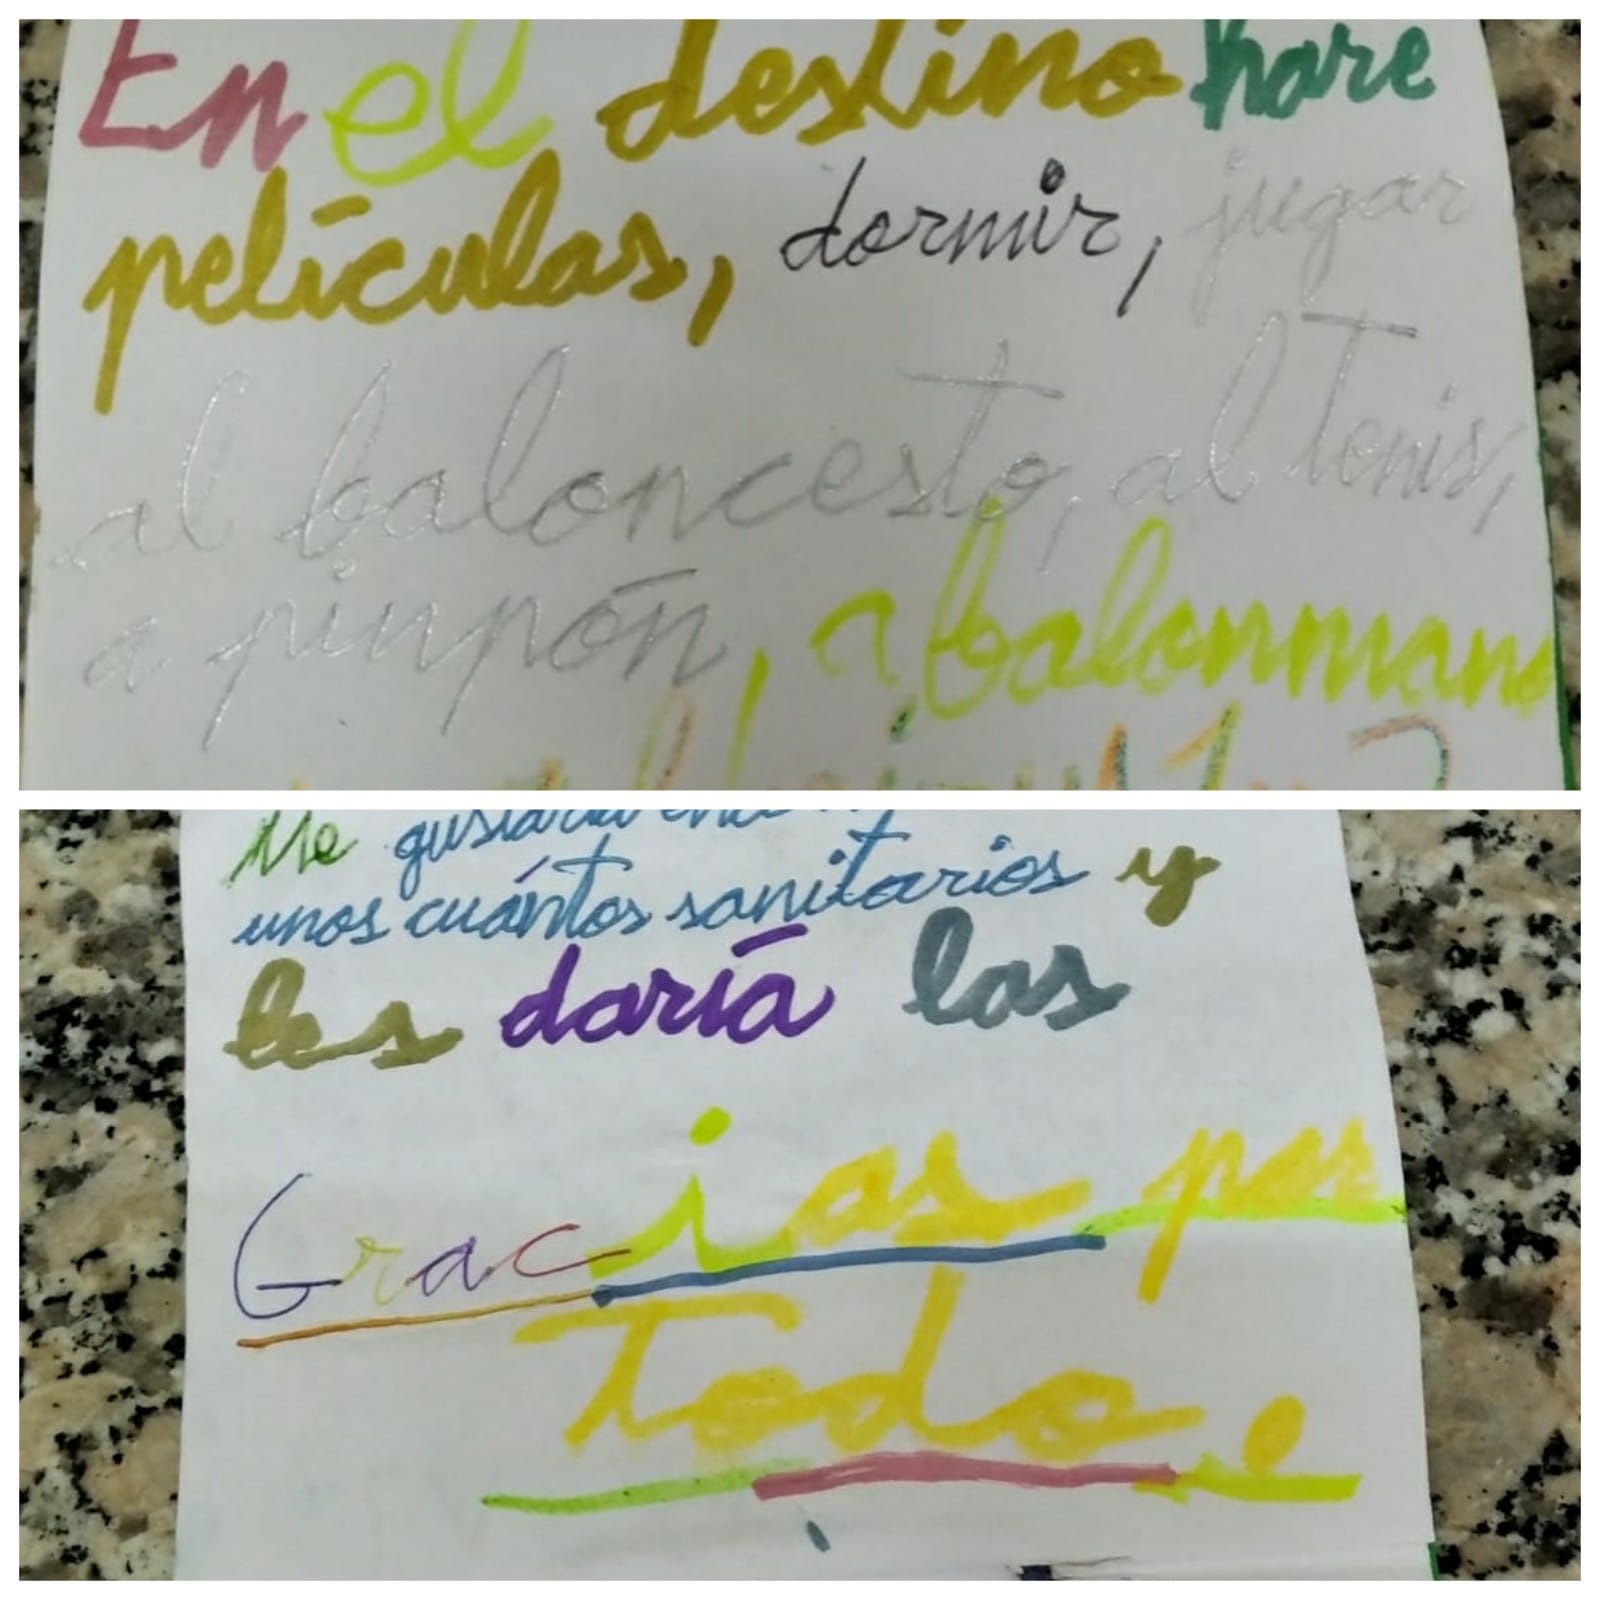 En el destino hare
películas, dormir, jugar
al baloncesto, al tenis,
a pinpón, a balonmano
Me gustaría
unos cuántos sanitarios y
les daría las
Gracias por
Todo.